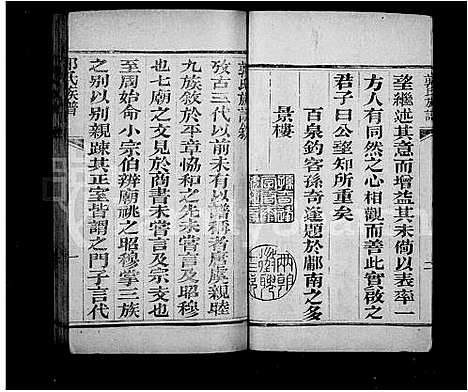 郭氏族譜
二
望繼述其意而增益其未備以表率一
方人有同然之心相觀而善此實啟之
君子曰公望知所重矣
百泉釣客孫奇逢題於酈南之多
景樓
郭氏族譜敘
攷古三代以前未有以譜稱者厚族親睦
九族敘於平章恊和之先未嘗言及昭穆
也七廟之文見於商書未嘗言及宗支也
至周始命小宗伯辨廟祧之昭穆掌三族
之別以別親疎其正室皆謂之門子言代
郭氏族譜
一